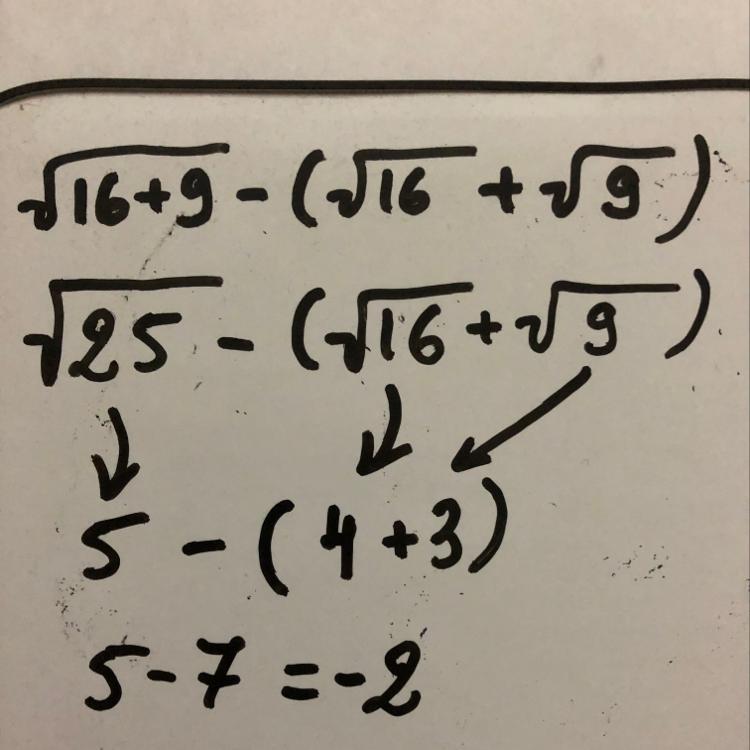 √16+9 - (√16 + √9)
√25 - (√16 + √9)
5 - (4+3)
5-7 =-2